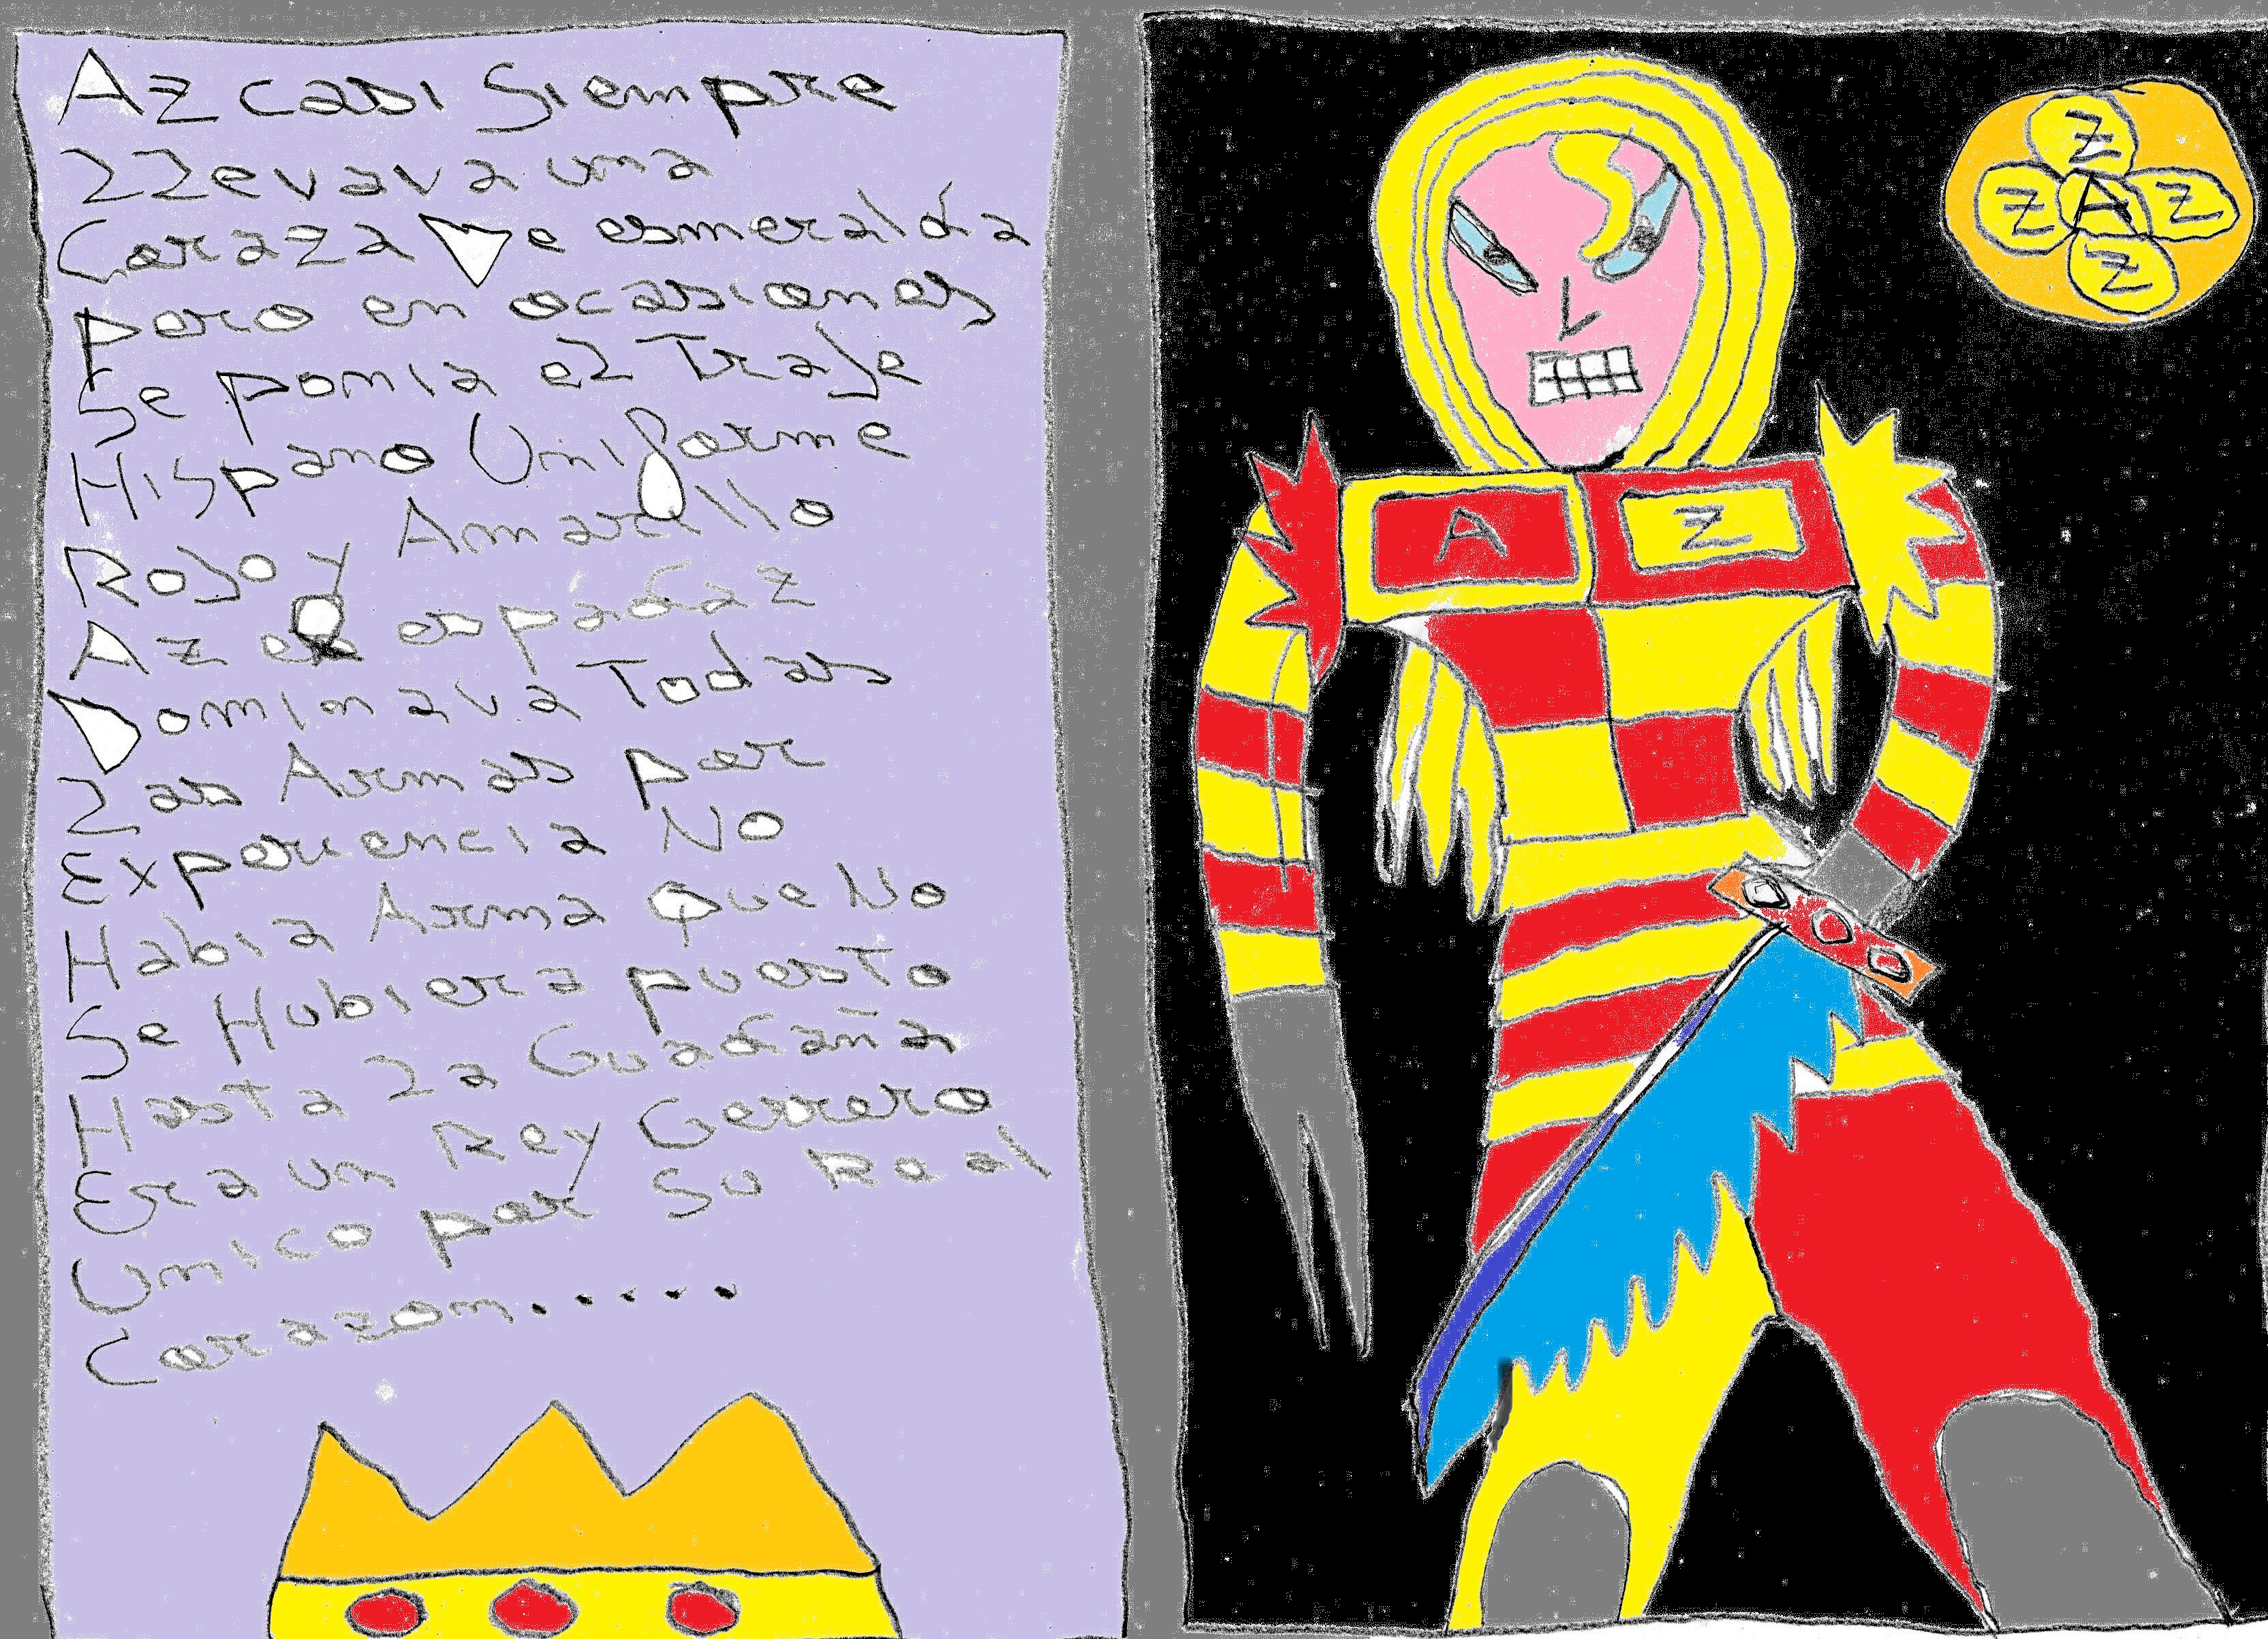 Az casi Siempre
LLevava una
Coraza De esmeralda
Pero en ocasiones
Se ponia el Traje
Hispano Uniforme
Rojo y Amarillo
Az es espadaz
Dominava Todas
Las Armas por
Experiencia No
Habia Arma que No
Se Hubiera puesto
Hasta la Guadaña
Era un Rey Gerrero
Unico por Su Real
Corazon.....
Z
Z A Z
Z
A Z